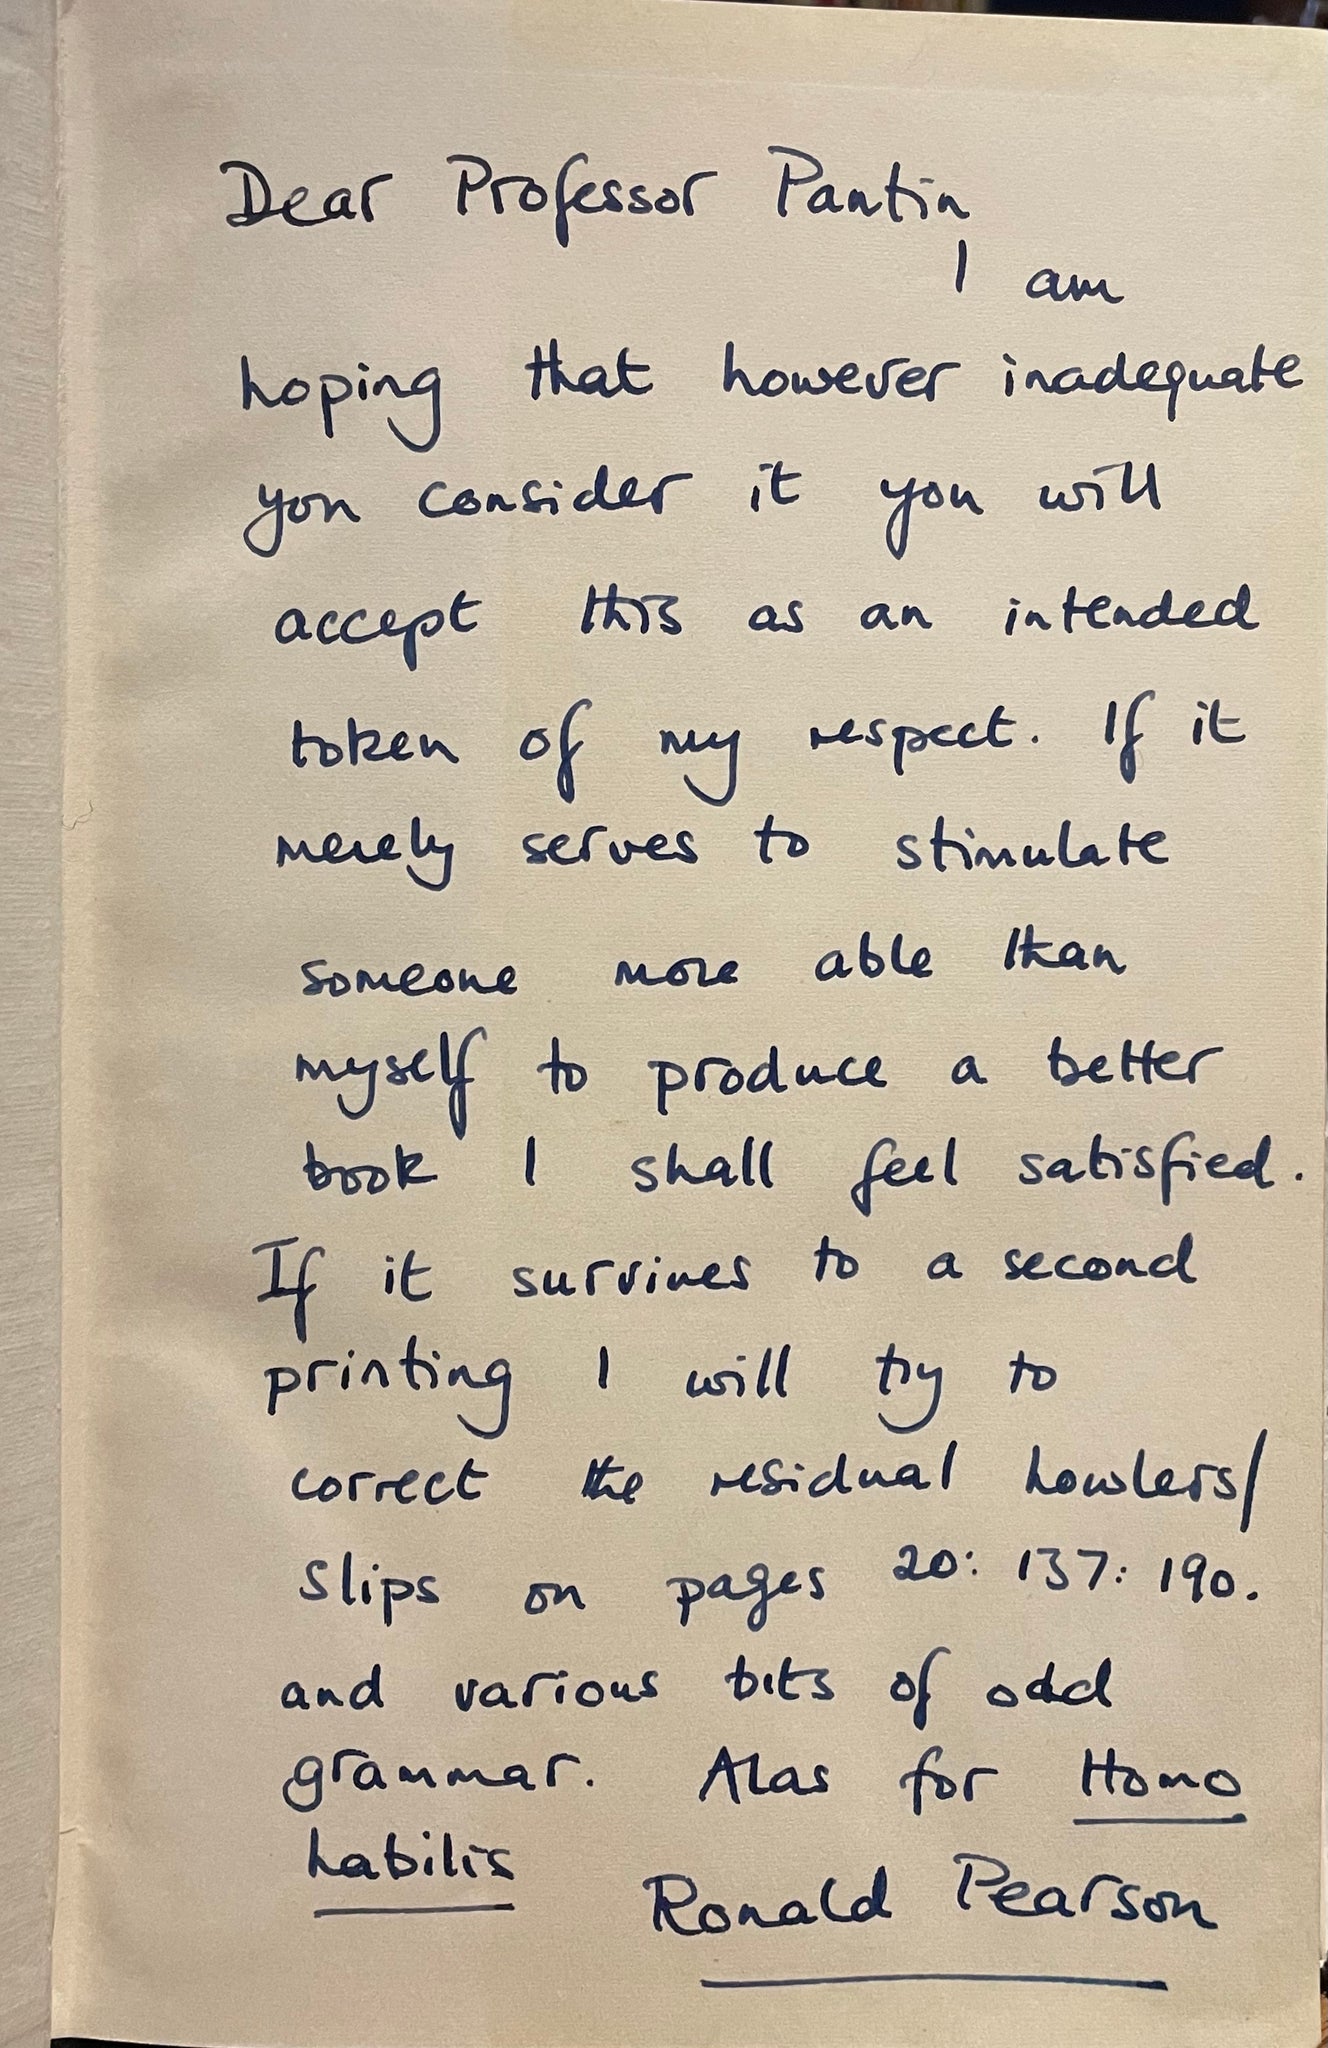 Dear Professor Pantin
I am
hoping that however inadequate
you consider it you will
accept this as an intended
token of my respect. If it
merely serves to stimulate
someone more able than
myself to produce a better
book I shall feel satisfied.
If it survives to a second
printing I will try to
correct the residual howlers/
slips on pages 20: 137: 190.
and various bits of odd
grammar. Alas for Homo
habilis
Ronald Pearson